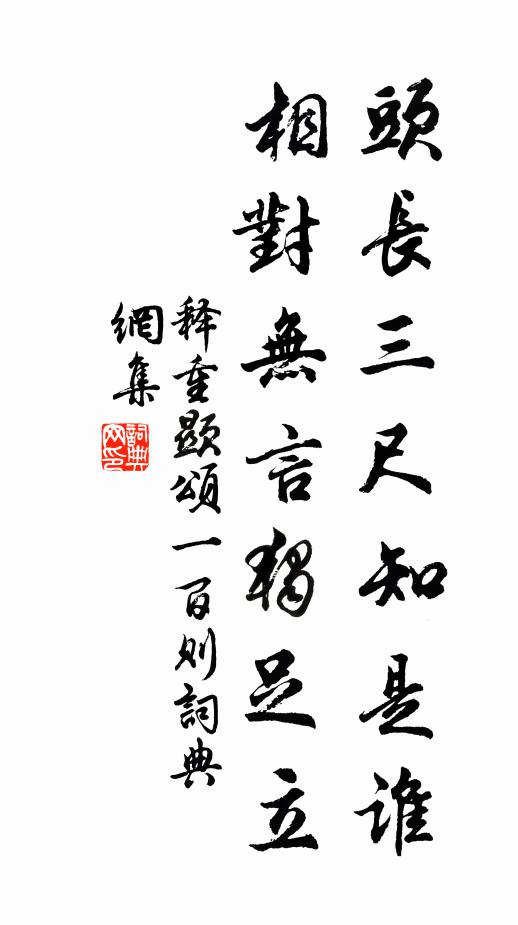 頭長三尺知是誰
相對無言獨足立
释重顯頌一百则詞典
網集
詞典網印